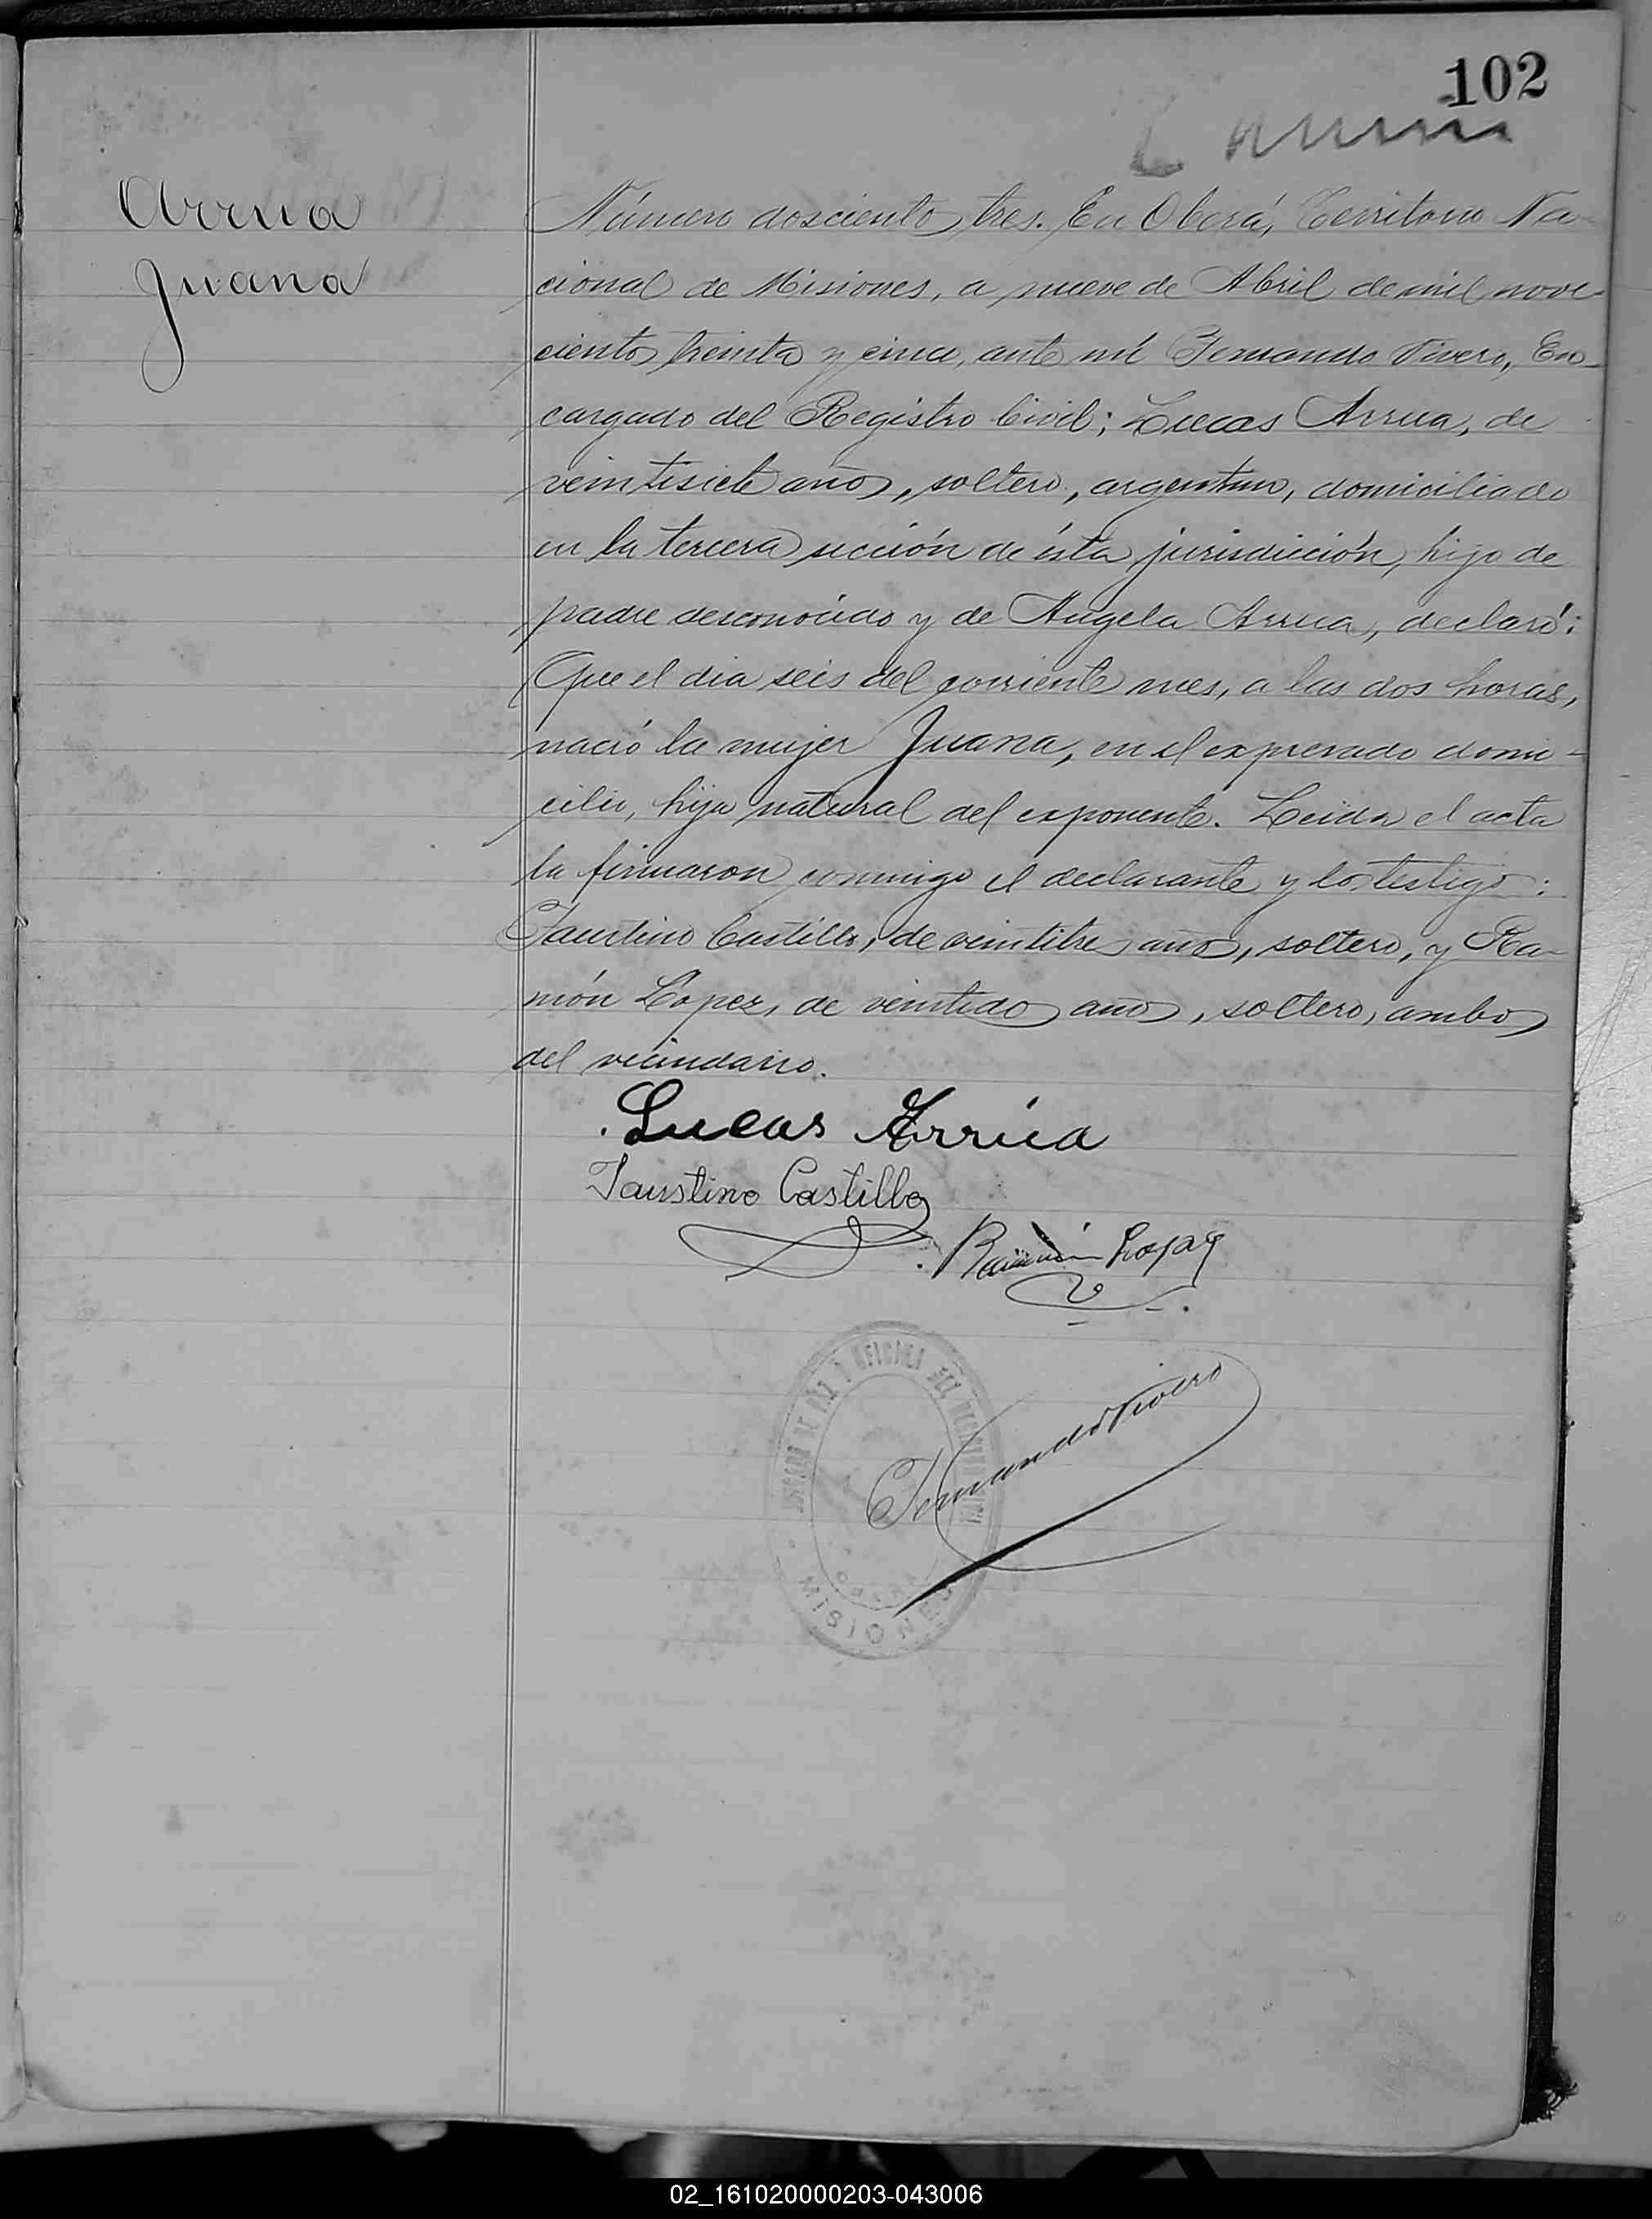 102
Arrua
Juana
Número doscientos tres. En Oberá, Territorio Na-
cional de Misiones, a nueve de Abril de mil nove-
cientos treinta y cinco, ante mí Fernando Vivero, En-
cargado del Registro Civil; Lucas Arrua, de
veintisiete años, soltero, argentino, domiciliado
en la tercera sección de ésta jurisdicción, hijo de
padre desconocido y de Angela Arrua, declaró:
Que el dia seis del corriente mes, a las dos horas,
nació la mujer Juana, en el expresado domi-
cilio, hija natural del exponente. Leida el acta
la firmaron conmigo el declarante y los testigos:
Faustino Castillo, de veintitres años, soltero, y Ra-
món Lopez, de veintidos años, soltero, ambos
del vecindario.
Lucas Arrúa
Faustino Castillo
Ramón Lopez
Fernando Vivero
JUZGADO DE PAZ Y OFICINA DEL REGISTRO CIVIL
OBERÁ
MISIONES
02_161020000203-043006